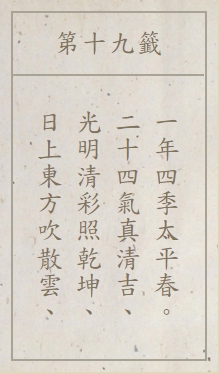 第十九籤
日上東方吹散雲、
光明清彩照乾坤、
二十四氣真清吉、
一年四季太平春。